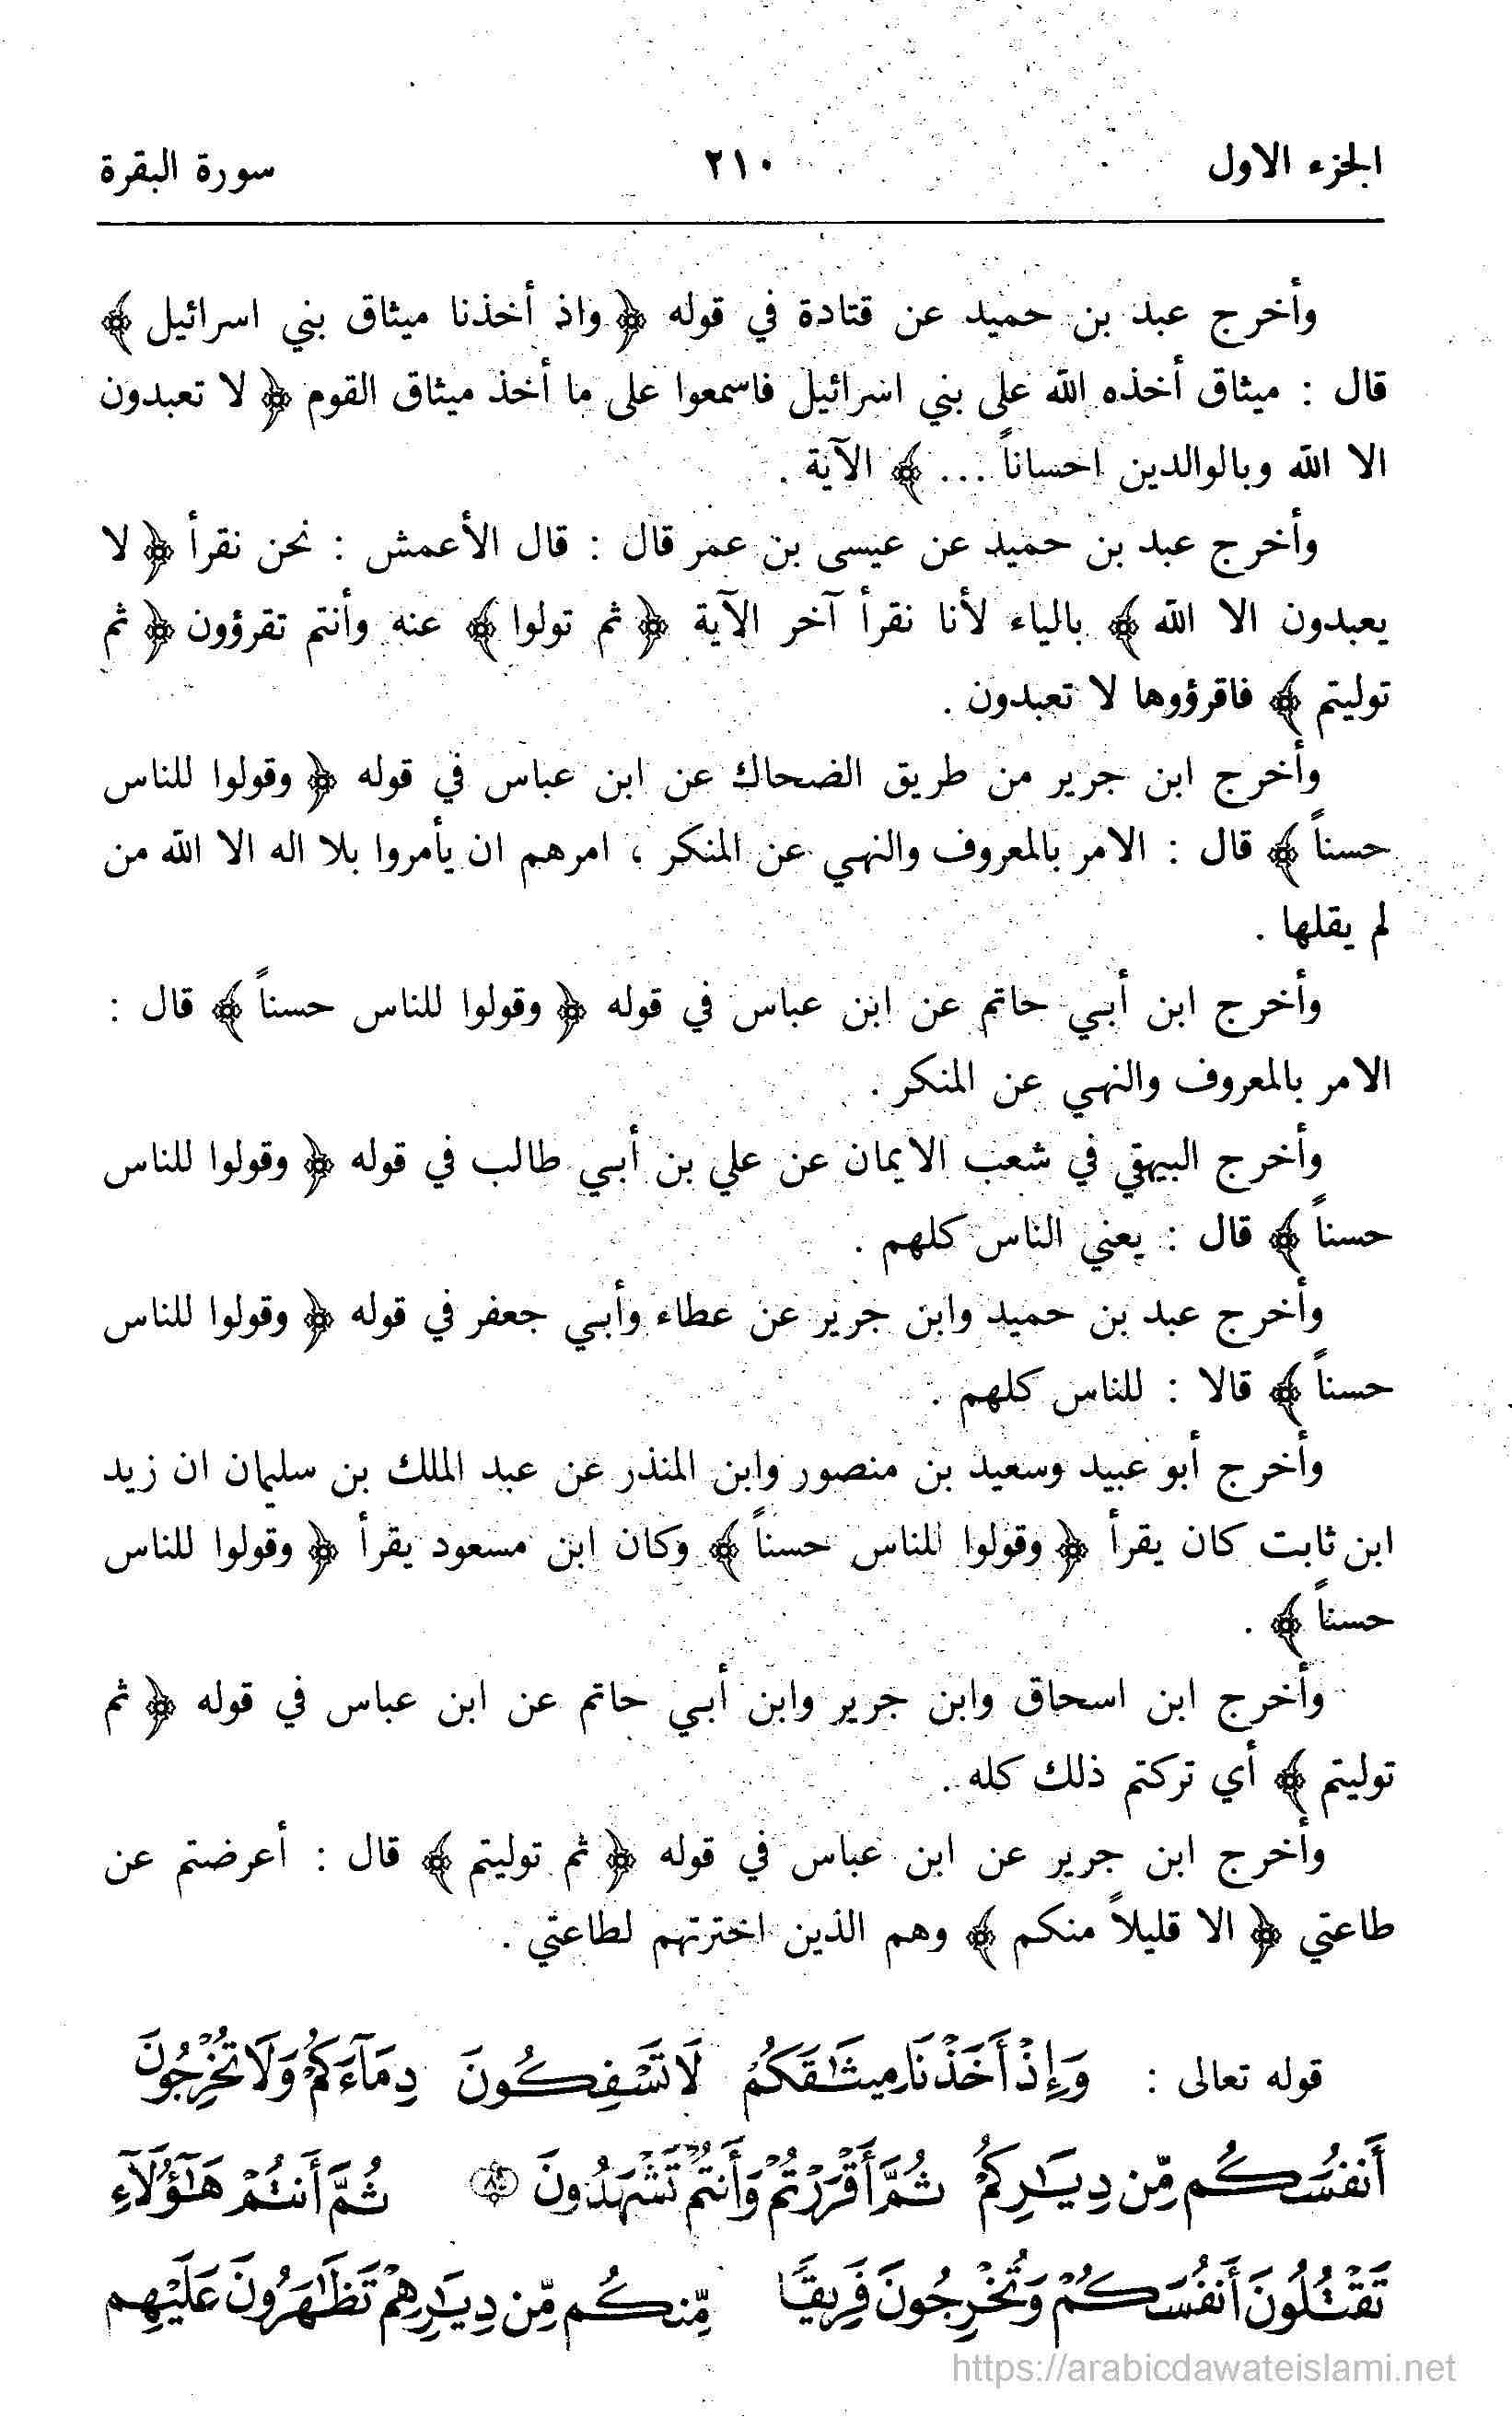 الجزء الاول ٢١٠ سورة البقرة
وأخرج عبد بن حميد عن قتادة في قوله ﴿ واذ أخذنا ميثاق بني اسرائيل ﴾
قال : ميثاق أخذه الله على بني اسرائيل فاسمعوا على ما أخذ ميثاق القوم ﴿ لا تعبدون
الا الله وبالوالدين احساناً ... ﴾ الآية .
وأخرج عبد بن حميد عن عيسى بن عمر قال : قال الأعمش : نحن نقرأ ﴿ لا
يعبدون الا الله ﴾ بالياء لأنا نقرأ آخر الآية ﴿ ثم تولوا ﴾ عنه وأنتم تقرؤون ﴿ ثم
توليتم ﴾ فاقرؤوها لا تعبدون .
وأخرج ابن جرير من طريق الضحاك عن ابن عباس في قوله ﴿ وقولوا للناس
حسناً ﴾ قال : الامر بالمعروف والنهي عن المنكر ، امرهم ان يأمروا بلا اله الا الله من
لم يقلها .
وأخرج ابن أبي حاتم عن ابن عباس في قوله ﴿ وقولوا للناس حسناً ﴾ قال :
الامر بالمعروف والنهي عن المنكر .
وأخرج البيهقي في شعب الايمان عن علي بن أبي طالب في قوله ﴿ وقولوا للناس
حسناً ﴾ قال : يعني الناس كلهم .
وأخرج عبد بن حميد وابن جرير عن عطاء وأبي جعفر في قوله ﴿ وقولوا للناس
حسناً ﴾ قالا : للناس كلهم .
وأخرج أبو عبيد وسعيد بن منصور وابن المنذر عن عبد الملك بن سليمان ان زيد
ابن ثابت كان يقرأ ﴿ وقولوا للناس حسناً ﴾ وكان ابن مسعود يقرأ ﴿ وقولوا للناس
حسناً ﴾ .
وأخرج ابن اسحاق وابن جرير وابن أبي حاتم عن ابن عباس في قوله ﴿ ثم
توليتم ﴾ أي تركتم ذلك كله .
وأخرج ابن جرير عن ابن عباس في قوله ﴿ ثم توليتم ﴾ قال : أعرضتم عن
طاعتي ﴿ الا قليلاً منكم ﴾ وهم الذين اخترتهم لطاعتي .
قوله تعالى : وَإِذْ أَخَذْنَا مِيثَٰقَكُمْ لَا تَسْفِكُونَ دِمَآءَكُمْ وَلَا تُخْرِجُونَ
أَنفُسَكُم مِّن دِيَٰرِكُمْ ثُمَّ أَقْرَرْتُمْ وَأَنتُمْ تَشْهَدُونَ ۝٨٤ ثُمَّ أَنتُمْ هَٰٓؤُلَآءِ
تَقْتُلُونَ أَنفُسَكُمْ وَتُخْرِجُونَ فَرِيقًا مِّنكُم مِّن دِيَٰرِهِمْ تَظَٰهَرُونَ عَلَيْهِم
https://arabicdawateislami.net